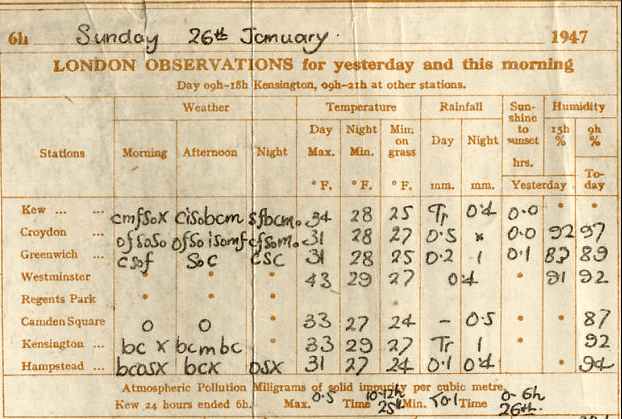 6h Sunday 26th January. 1947
LONDON OBSERVATIONS for yesterday and this morning
Day 09h-18h Kensington, 09h-21h at other stations.
Stations Weather Temperature Rainfall Sun-shine to sunset Humidity
Morning Afternoon Night Day Max. Night Min. Min. on grass Day Night hrs. 15h % 9h %
° F. ° F. ° F. mm. mm. Yesterday To-day
Kew ... ... cmfsox cisobcm sfbcmo 34 28 25 Tr 0.4 0.0 * *
Croydon ... ofsoso ofsoisomf cfsomo 31 28 27 0.5 x 0.0 92 97
Greenwich ... csof soc csc 31 28 25 0.2 1 0.1 83 89
Westminster * * * 43 29 27 0.4 * 91 92
Regents Park * * * * * *
Camden Square o o 33 27 24 - 0.5 * * 87
Kensington ... bc x bcm bc 33 29 27 Tr 1 * 92
Hampstead ... bcosx bcx osx 31 27 24 0.1 0.4 * * 94
Atmospheric Pollution Miligrams of solid impurity per cubic metre.
Kew 24 hours ended 6h. Max. 0.5 Time 10-12h 25th Min. T0.1 Time 0-6h 26th